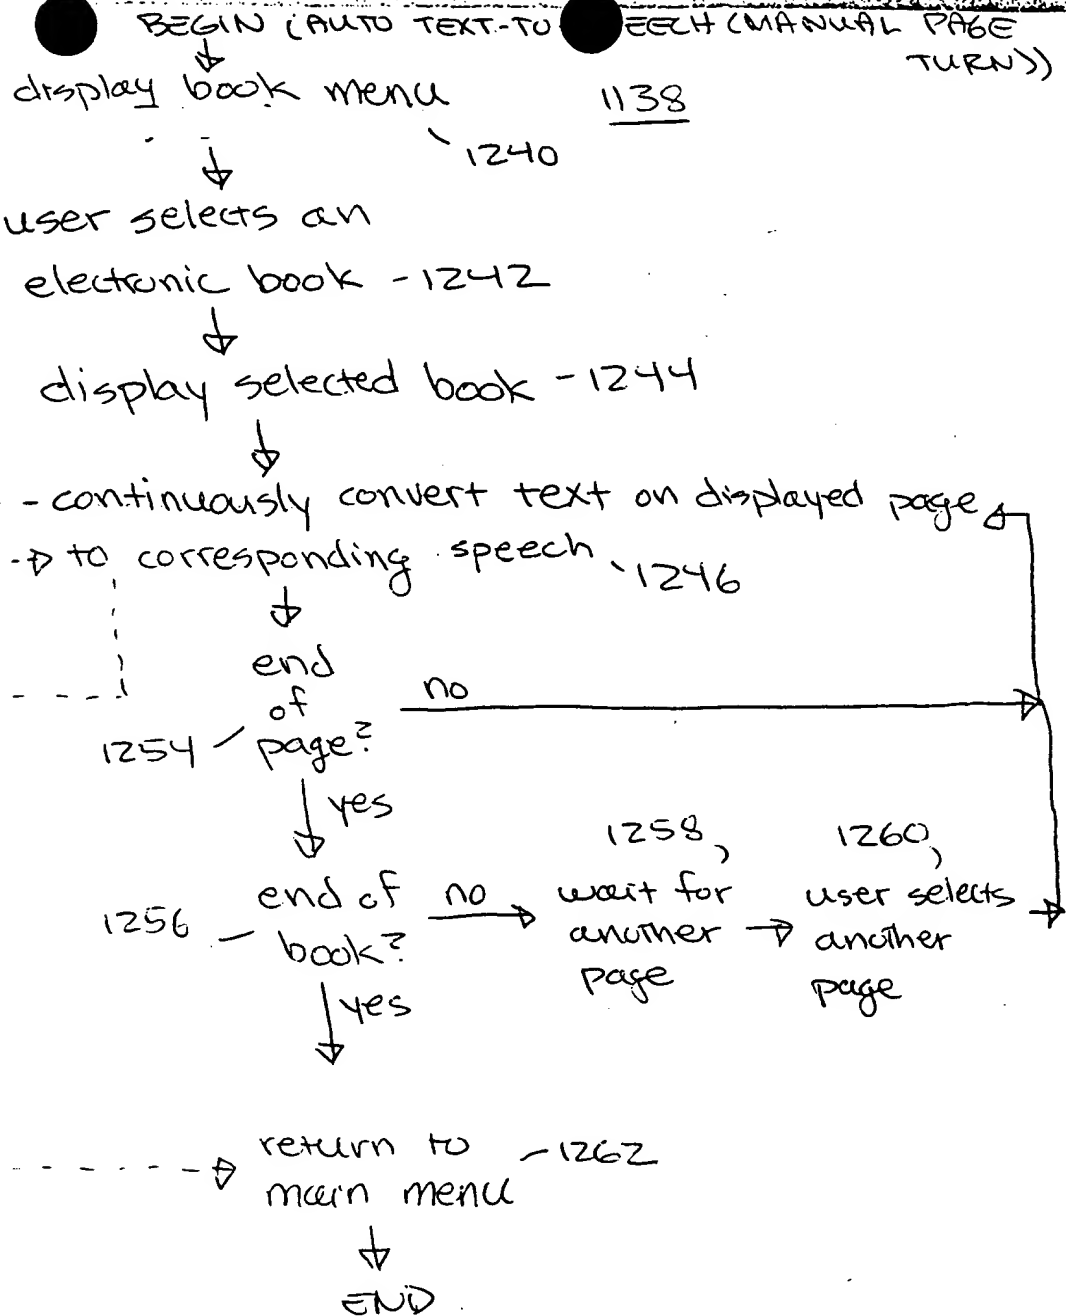 BEGIN (AUTO TEXT-TO EECH (MANUAL PAGE
TURN))
display book menu
1138
1240
user selects an
electronic book - 1242
display selected book - 1244
continuously convert text on displayed page
to corresponding speech
1246
end
of
page?
no
1254
yes
1258
1260
end of
book?
no
wait for
another
page
user selects
another
page
1256
yes
return to
main menu
1262
END